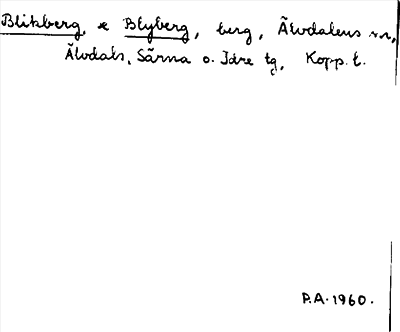 Blikberg, se Blyberg, berg, Älvdalens sn,
Älvdals, Särna o. Idre tg, Kopp. l.
P.A. 1960.